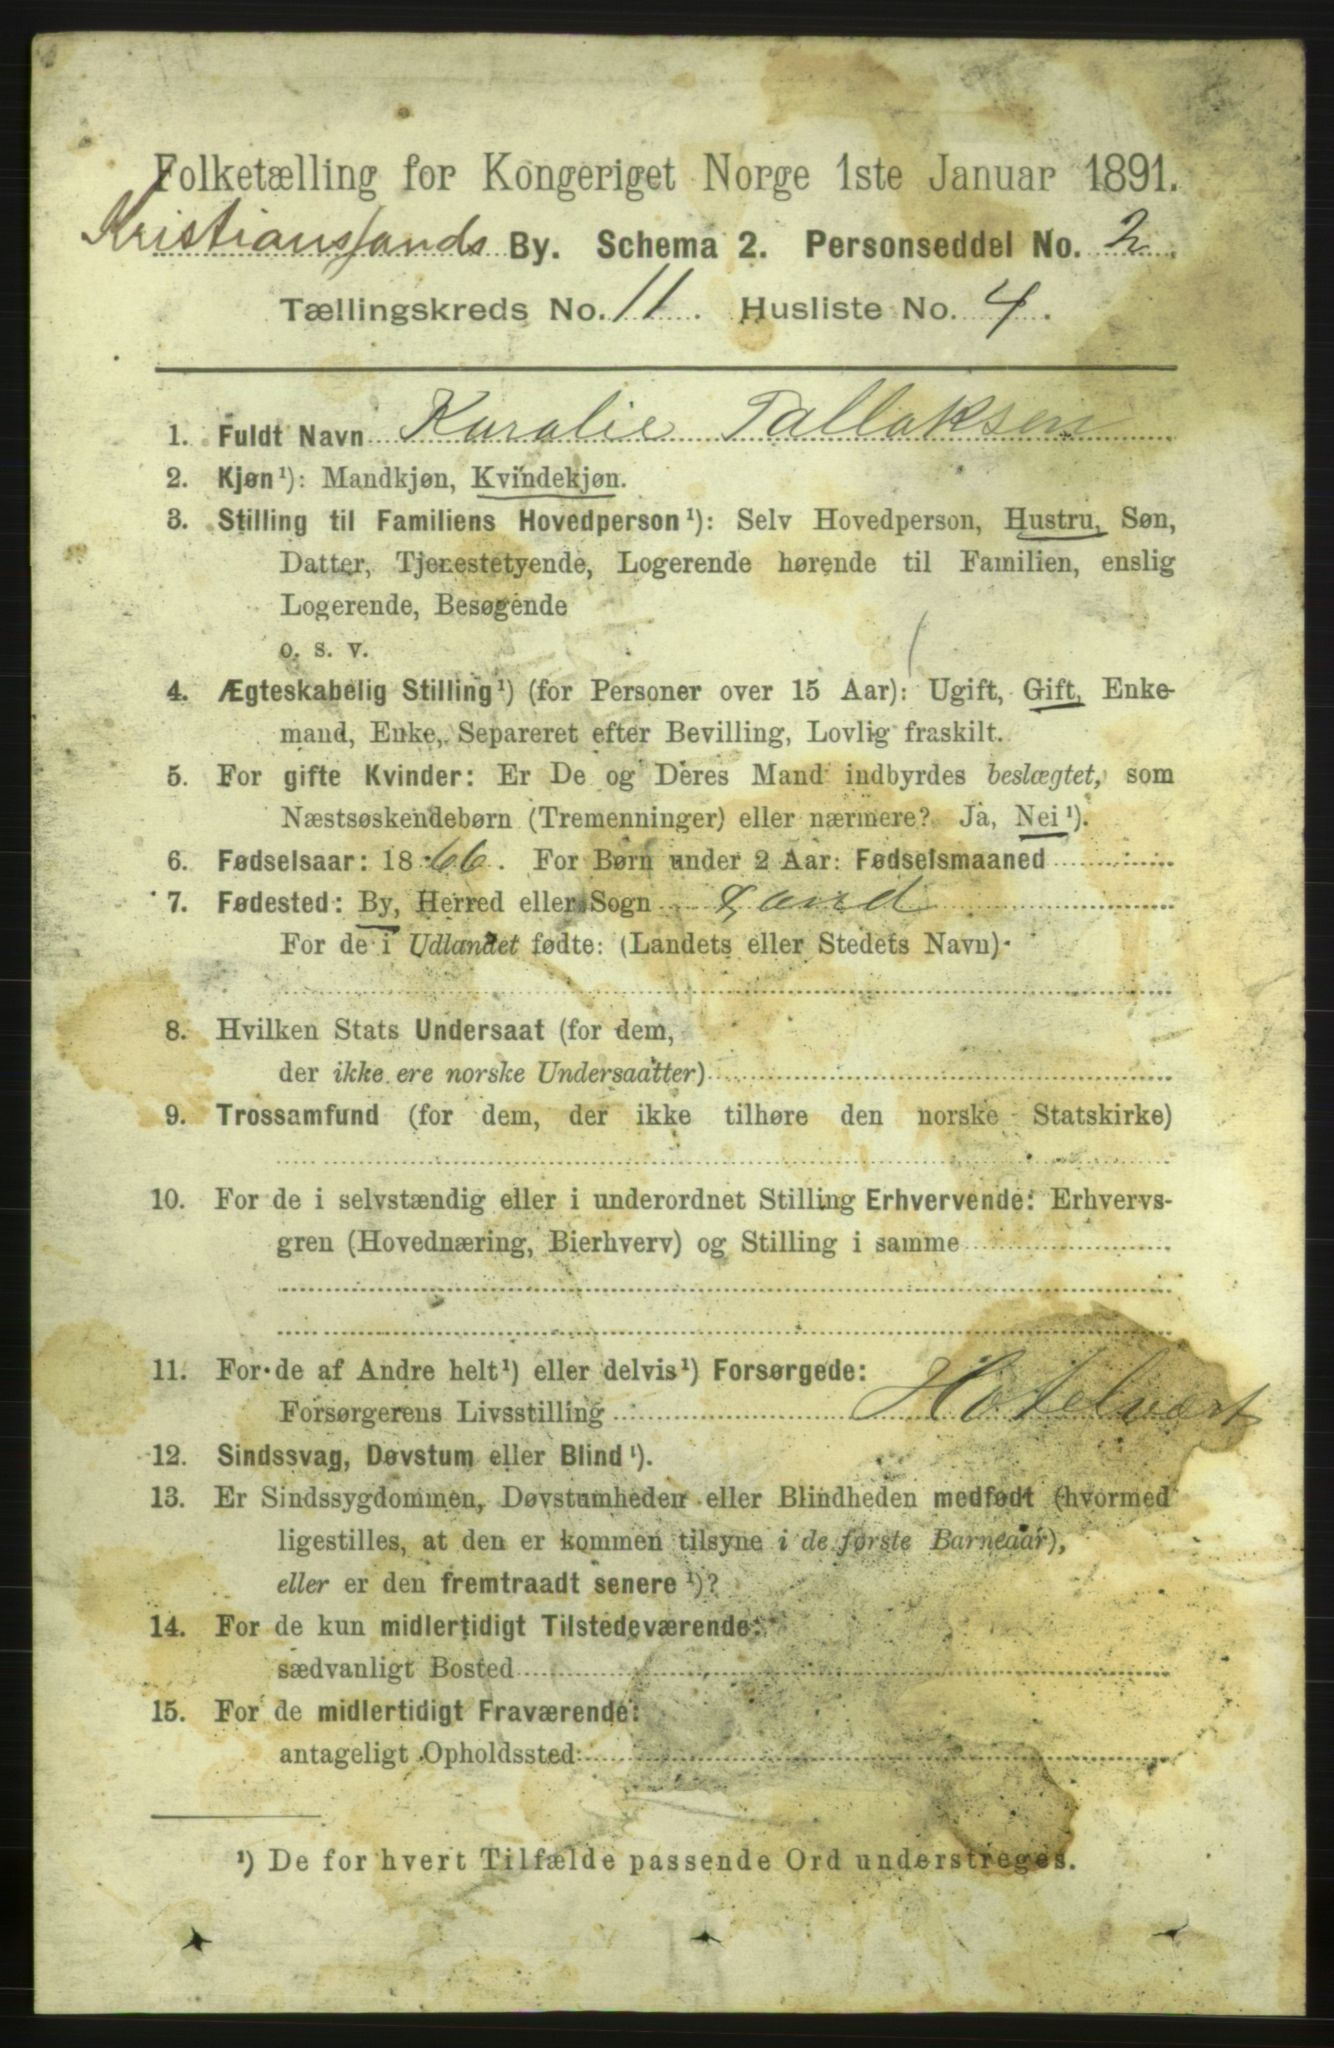 Folketælling for Kongeriget Norge 1ste Januar 1891.
Kristianssands By. Schema 2. Personseddel No. 2.
Tællingskreds No. 11. Husliste No. 4.
1. Fuldt Navn Karalie Tallaksen
2. Kjøn¹): Mandkjøn, Kvindekjøn.
3. Stilling til Familiens Hovedperson¹): Selv Hovedperson, Hustru, Søn,
Datter, Tjenestetyende, Logerende hørende til Familien, enslig
Logerende, Besøgende
o. s. v.
4. Ægteskabelig Stilling¹) (for Personer over 15 Aar): Ugift, Gift, Enke-
mand, Enke, Separeret efter Bevilling, Lovlig fraskilt.
5. For gifte Kvinder: Er De og Deres Mand indbyrdes beslægtet, som
Næstsøskendebørn (Tremenninger) eller nærmere? Ja, Nei¹).
6. Fødselsaar: 1866. For Børn under 2 Aar: Fødselsmaaned
7. Fødested: By, Herred eller Sogn Sand
For de i Udlandet fødte: (Landets eller Stedets Navn)
8. Hvilken Stats Undersaat (for dem,
der ikke ere norske Undersaatter)
9. Trossamfund (for dem, der ikke tilhøre den norske Statskirke)
10. For de i selvstændig eller i underordnet Stilling Erhvervende: Erhvervs-
gren (Hovednæring, Bierhverv) og Stilling i samme
11. For de af Andre helt¹) eller delvis¹) Forsørgede:
Forsørgerens Livsstilling Hotelvært
12. Sindssvag, Døvstum eller Blind¹).
13. Er Sindssygdommen, Døvstumheden eller Blindheden medfødt (hvormed
ligestilles, at den er kommen tilsyne i de første Barneaar),
eller er den fremtraadt senere¹)?
14. For de kun midlertidigt Tilstedeværende:
sædvanligt Bosted
15. For de midlertidigt Fraværende:
antageligt Opholdssted
¹) De for hvert Tilfælde passende Ord understreges.